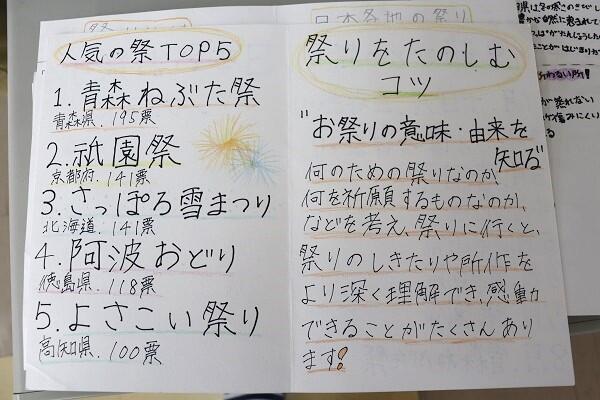 人気の祭TOP5
1.青森ねぶた祭
青森県.195票
2.祇園祭
京都府.141票
3.さっぽろ雪まつり
北海道.141票
4.阿波おどり
徳島県.118票
5.よさこい祭り
高知県.100票
日本各地の祭り
祭りをたのしむ
コツ
"お祭りの意味・由来を
知る"
何のための祭りなのか、
何を祈願するものなのか、
などを考え、祭りに行くと、
祭りのしきたりや所作を
より深く理解でき、感動が
できることがたくさんあり
ます!